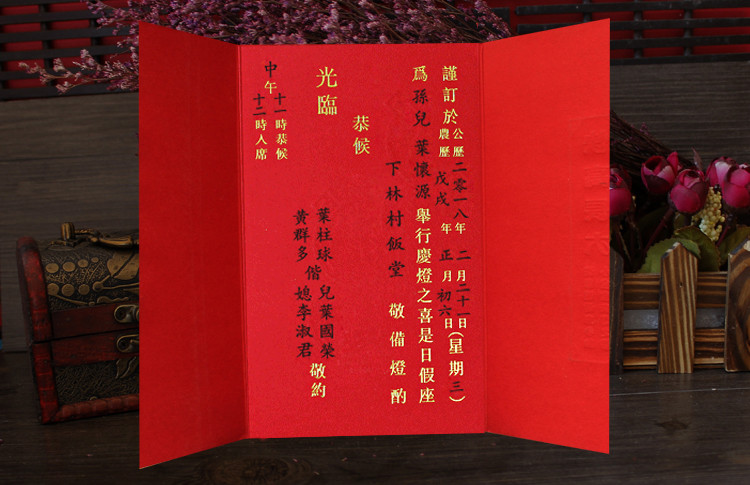 謹訂於公歷二零一八年二月二十一日(星期三)
農歷戊戌年正月初六日
爲孫兒葉懷源舉行慶燈之喜是日假座
下林村飯堂 敬備燈酌
恭候
光臨
葉柱球 兒葉國榮
黃群多 偕 媳李淑君 敬約
中午
十一時恭候
十二時入席